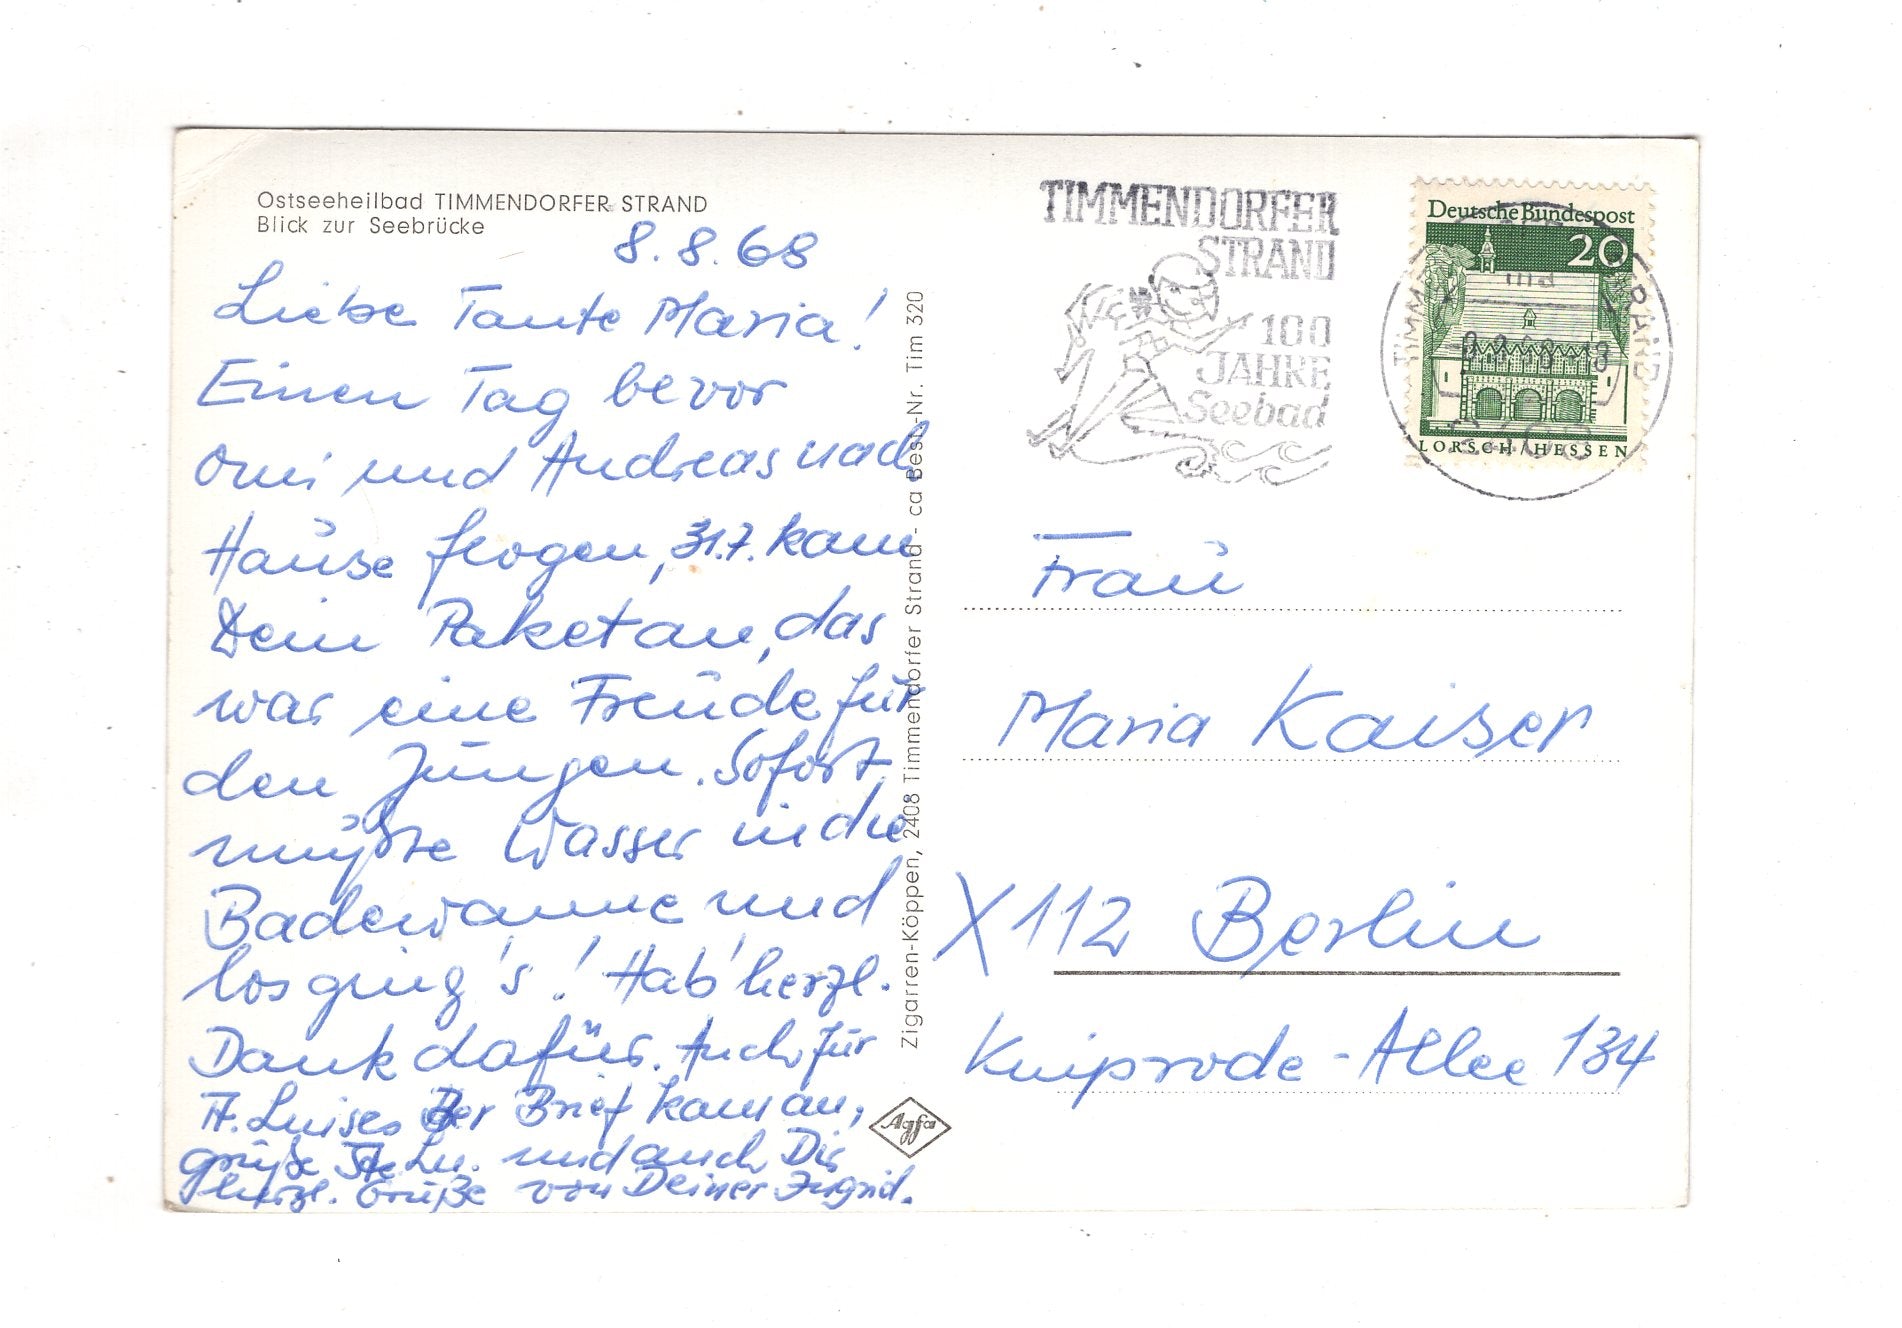 Ostseeheilbad TIMMENDORFER STRAND
Blick zur Seebrücke
8.8.68
Liebe Tante Maria!
Einen Tag bevor
Omi und Andreas nach
Hause flogen, 31.7. kam
Dein Paket an, das
war eine Freude für
den Jungen. Sofort
mußte Wasser in die
Badewanne und
los ging's! Hab' herzl.
Dank dafür. Auch für
T. Luises Der Brief kam an,
grüße Lu. und auch Dir
herzl. Grüße von Deiner Ingrid.
Zigarren-Köppen, 2408 Timmendorfer Strand - ca Best.-Nr. Tim 320
Agfa
TIMMENDORFER
STRAND
100
JAHRE
Seebad
Deutsche Bundespost
20
LORSCH/HESSEN
TIMMENDORFER STRAND
2408
Frau
Maria Kaiser
X 112 Berlin
Kniprode-Allee 134